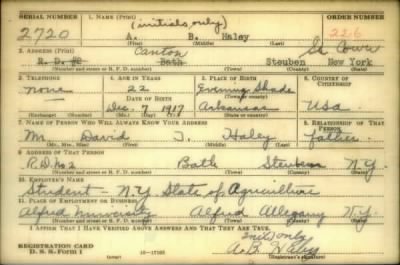 SERIAL NUMBER 1. NAME (Print) ORDER NUMBER
(initials only)
2720 A. B. Haley 226
(First) (Middle) (Last)
2. ADDRESS (Print) Canton St. Lawr
R. D. #2 Bath Steuben New York
(Number and street or R. F. D. number) (Town) (County) (State)
3. TELEPHONE 4. AGE IN YEARS 5. PLACE OF BIRTH 6. COUNTRY OF CITIZENSHIP
none 22 Evening Shade
DATE OF BIRTH (Town or county)
Dec. 7 1917 Arkansas USA.
(Exchange) (Number) (Mo.) (Day) (Yr.) (State or country)
7. NAME OF PERSON WHO WILL ALWAYS KNOW YOUR ADDRESS 8. RELATIONSHIP OF THAT PERSON
Mr. David J. Haley Father
(Mr., Mrs., Miss) (First) (Middle) (Last)
9. ADDRESS OF THAT PERSON
R.D. No 2 Bath Steuben N.Y.
(Number and street or R. F. D. number) (Town) (County) (State)
10. EMPLOYER'S NAME
Student - N.Y. State of Agriculture
11. PLACE OF EMPLOYMENT OR BUSINESS
Alfred University Alfred Allegany N.Y.
(Number and street or R. F. D. number) (Town) (County) (State)
I AFFIRM THAT I HAVE VERIFIED ABOVE ANSWERS AND THAT THEY ARE TRUE.
REGISTRATION CARD
D. S. S. Form 1 (over) A. B. Haley
(Registrant's signature)